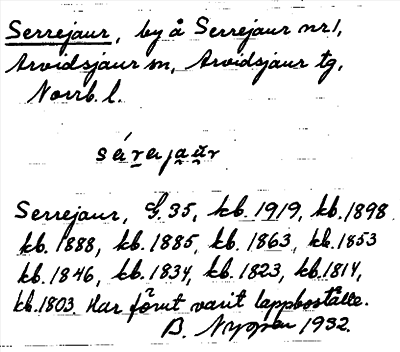 Serrejaur, by å Serrejaur nr 1,
Arvidsjaur sn, Arvidsjaur tg,
Norrb. l.
Serrejaur, G.35, kb. 1919, kb. 1898
kb. 1888, kb. 1885, kb. 1863, kb. 1853
kb. 1846, kb. 1834, kb. 1823, kb. 1814,
kb. 1803. Har förut varit lappboställe.
B. 1932.